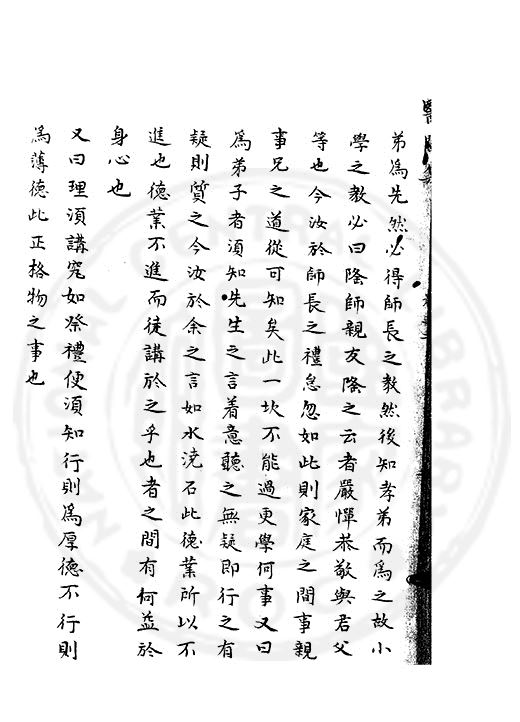 弟為先然必得師長之教然後知孝弟而為之故小
學之教必曰隆師親友隆之云者嚴憚恭敬與君父
等也今汝於師長之禮怠忽如此則家庭之間事親
事兄之道從可知矣此一坎不能過更學何事又曰
為弟子者須知先生之言着意聽之無疑即行之有
疑則質之今汝於余之言如水澆石此德業所以不
進也德業不進而徒講於之乎也者之間有何益於
身心也
又曰理須講究如祭禮便須知行則為厚德不行則
為薄德此正格物之事也